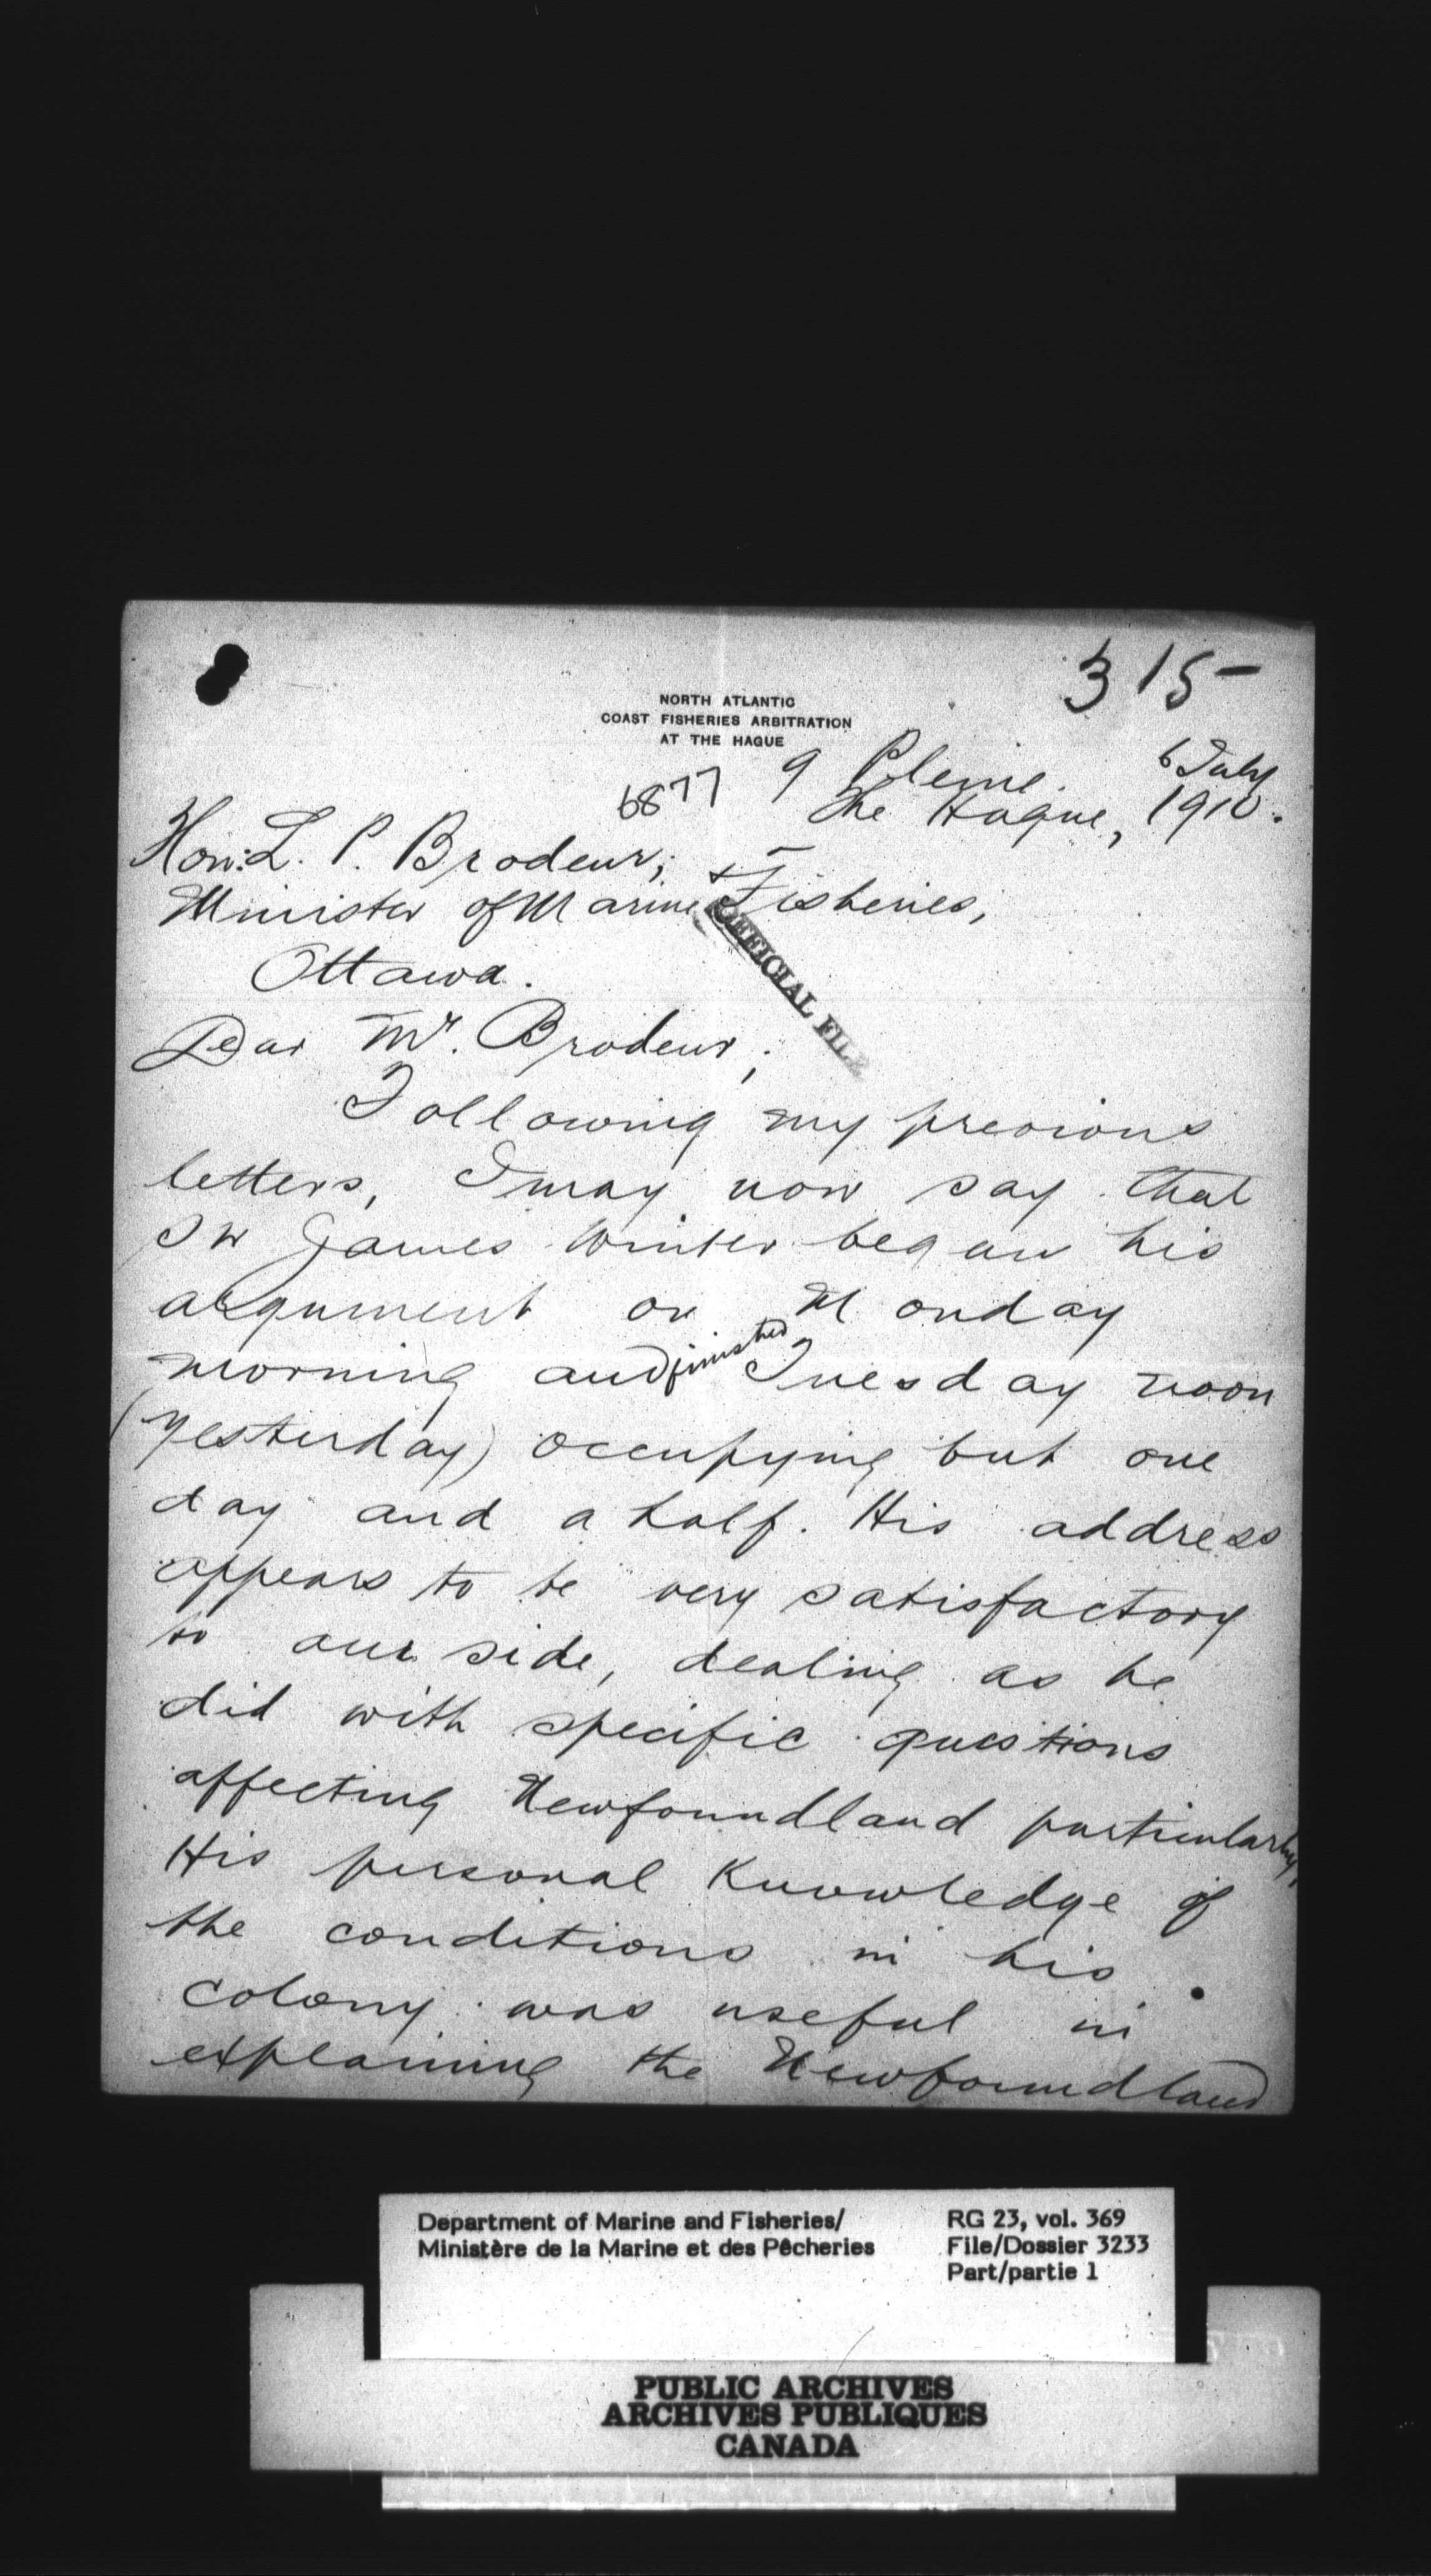 315
NORTH ATLANTIC
COAST FISHERIES ARBITRATION
AT THE HAGUE
6877
9 Pleine. 6 July
The Hague, 1910.
Hon: L. P. Brodeur;
Minister of Marine & Fisheries,
OFFICIAL FILE
Ottawa.
Dear Mr. Brodeur;
Following my previous
letters, I may now say that
Sir James Winter began his
argument on Monday
morning and finished Tuesday noon
(yesterday) occupying but one
day and a half. His address
appears to be very satisfactory
to our side, dealing as he
did with specific questions
affecting Newfoundland particularly,
His personal knowledge of
the conditions in his
colony was useful in
explaining the Newfoundland
Department of Marine and Fisheries/
Ministère de la Marine et des Pêcheries
RG 23, vol. 369
File/Dossier 3233
Part/partie 1
PUBLIC ARCHIVES
ARCHIVES PUBLIQUES
CANADA